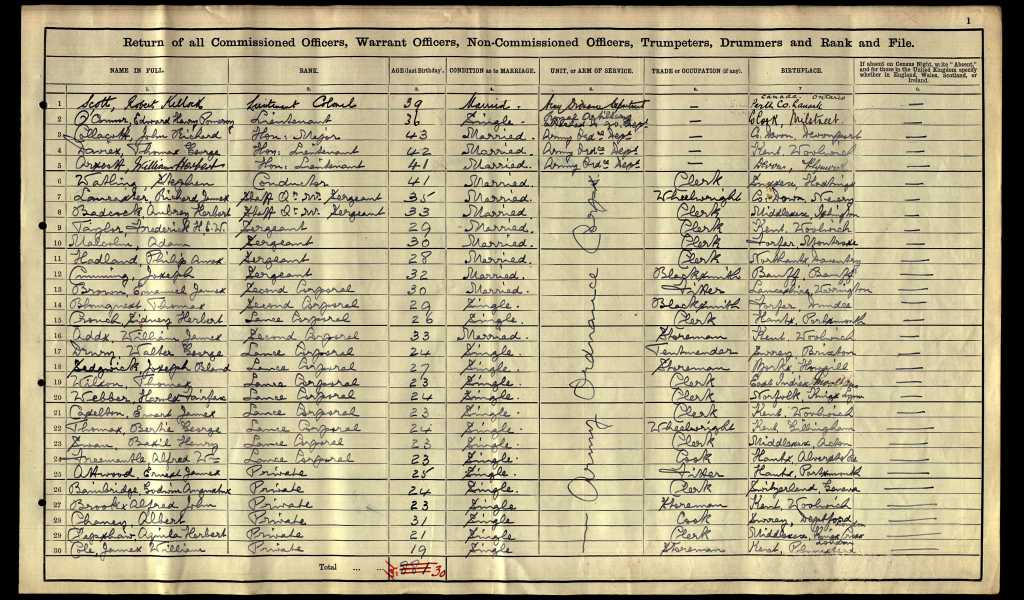 1
Return of all Commissioned Officers, Warrant Officers, Non-Commissioned Officers, Trumpeters, Drummers and Rank and File.
NAME IN FULL. RANK. AGE (last Birthday). CONDITION as to MARRIAGE. UNIT, OR ARM OF SERVICE. TRADE or OCCUPATION (if any). BIRTHPLACE. If absent on Census Night, write "Absent," and for those in the United Kingdom specify whether in England, Wales, Scotland, or Ireland.
1 Scott, Robert Lieutenant Colonel 39 Married — Canada, Ontario Perth Co. Lanark —
2 O'Connor, Edward Henry Lieutenant 36 Single — Cork, Millstreet —
3 John Richard Hon: Major 43 Married. Army Ord: Dept — Devon, Devonport —
4 Davies, Thomas George Hon: Lieutenant 42 Married. Army Ord: Dept — Kent, Woolwich —
5 William Herbert Hon: Lieutenant 41 Married. Army Ord: Dept — Devon, Plymouth —
6 Watling, Stephen Conductor 41 Married. Clerk Sussex, Hastings —
7 Lancaster, Richard James Staff Qr. Mr. Sergeant 35 Married. Wheelwright Co. Down, Newry —
8 Aubrey Herbert Staff Qr. Mr. Sergeant 33 Married. Clerk Middlesex, Islington —
9 Taylor, Frederick H.E.W. Sergeant 29 Married. Clerk Kent, Woolwich —
10 Malcolm, Adam Sergeant 30 Married. Clerk Forfar, Montrose —
11 Hadland, Philip Amos Sergeant 28 Married. Clerk Northants, Daventry —
12 Cumming, Joseph Sergeant 32 Married. Blacksmith Banff, Banff —
13 Brown, Emanuel James Second Corporal 30 Married. Fitter Lancashire, Warrington —
14 Thomas Second Corporal 29 Single. Blacksmith Forfar, Dundee —
15 Crouch, Sidney Herbert Lance Corporal 26 Single. Clerk Hants, Portsmouth —
16 Adds, William James Second Corporal 33 Married. Storeman Kent, Woolwich —
17 Drury, Walter George Lance Corporal 24 Single. Tentmender Surrey, Brixton —
18 Sedgwick, Joseph Lance Corporal 27 Single. Storeman —
19 Wilson, Thomas Lance Corporal 23 Single. Clerk East Indies —
20 Webber, Harold Fairfax Lance Corporal 24 Single. Clerk Norfolk, Kings Lynn —
21 Ernest James Lance Corporal 23 Single. Clerk Kent, Woolwich —
22 Thomas, Bertie George Lance Corporal 24 Single. Wheelwright Kent, Gillingham —
23 Swan, Basil Henry Lance Corporal 23 Single. Clerk Middlesex, Acton —
24 Freemantle, Alfred Wm Lance Corporal 23 Single. Cook Hants, Alverstoke —
25 Attwood, Ernest James Private 25 Single. Fitter Hants, Portsmouth —
26 Bainbridge, Godwin Augustus Private 24 Single. Clerk Switzerland, Geneva —
27 Brooks, Alfred John Private 23 Single Storeman Kent, Woolwich —
28 Chaney, Albert Private 31 Single Cook Surrey, Deptford —
29 Herbert Private 21 Single Clerk Middlesex, London —
30 Cole, James William Private 19 Single Storeman Kent, Plumstead —
— Army Ordnance Corps
Total ... ... 30